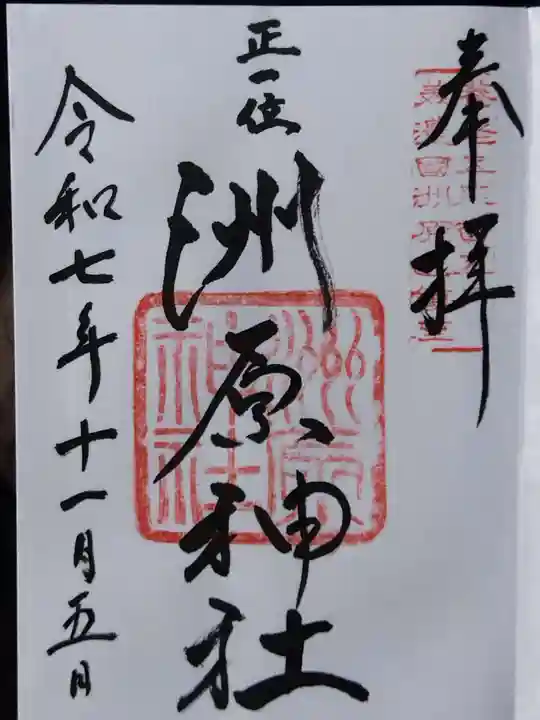 奉拝
正一位
洲原神社
洲原神社
令和七年十一月五日